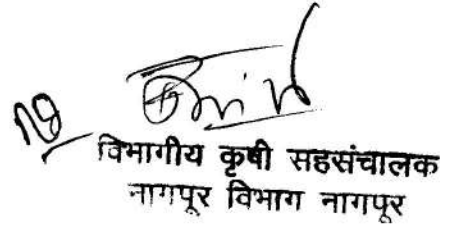 विभागीय कृषी सहसंचालक
नागपूर विभाग नागपूर